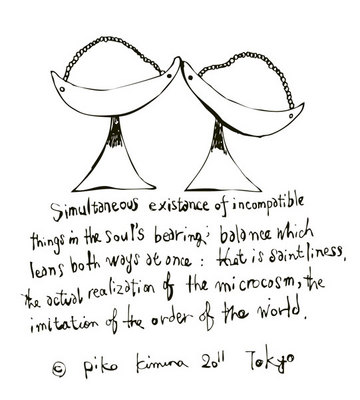 Simultaneous existance of incompatible
things in the soul's bearing; balance which
leans both ways at once : that is saintliness,
the actual realization of the microcosm, the
imitation of the order of the world.
© piko kimura 2011 Tokyo